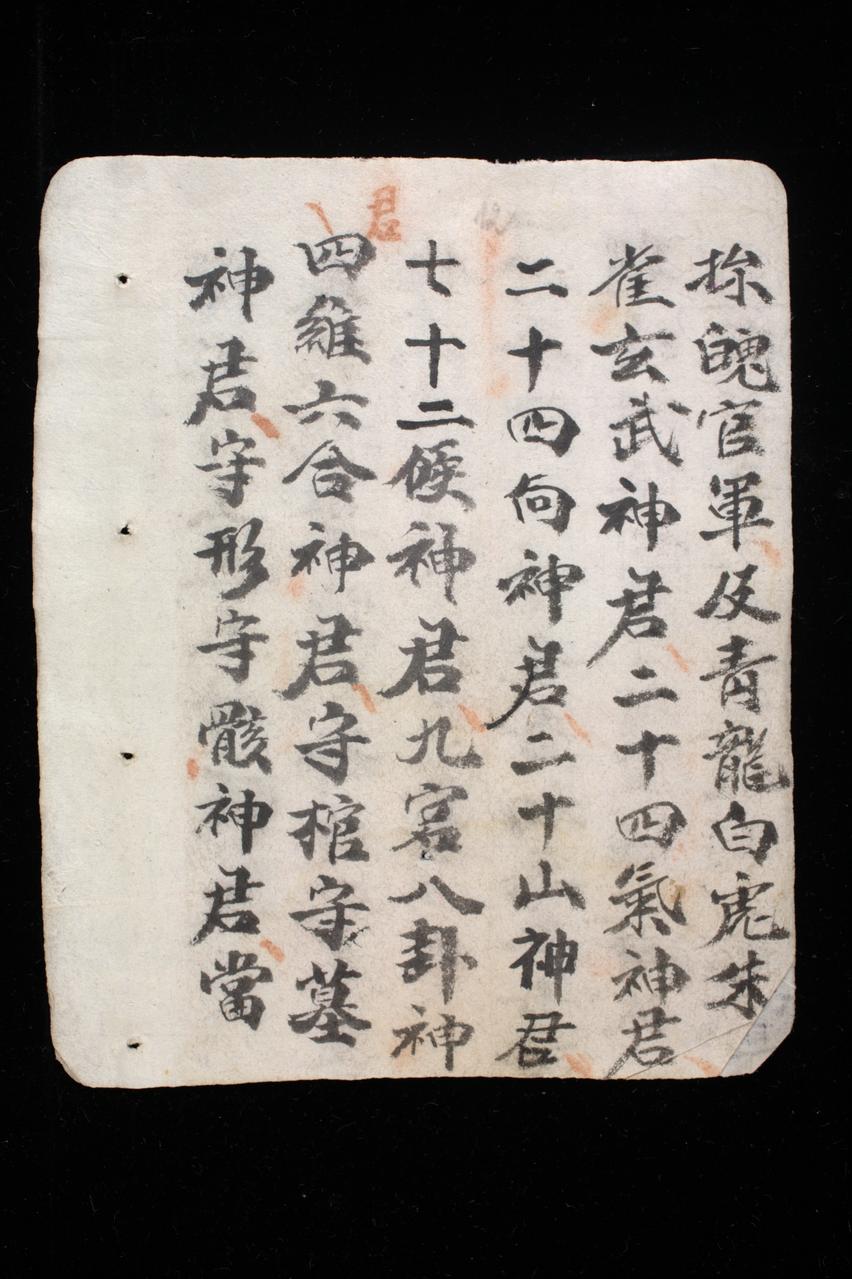 魄官軍及青龍白虎朱
雀玄武神君二十四氣神君
二十四向神君二十山神君
七十二候神君九宮八卦神
君
四維六合神君守棺守墓
神君守形守骸神君當